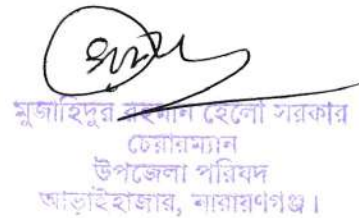 মুজাহিদুর রহমান হেলো সরকার
চেয়ারম্যান
উপজেলা পরিষদ
আড়াইহাজার, নারায়ণগঞ্জ।